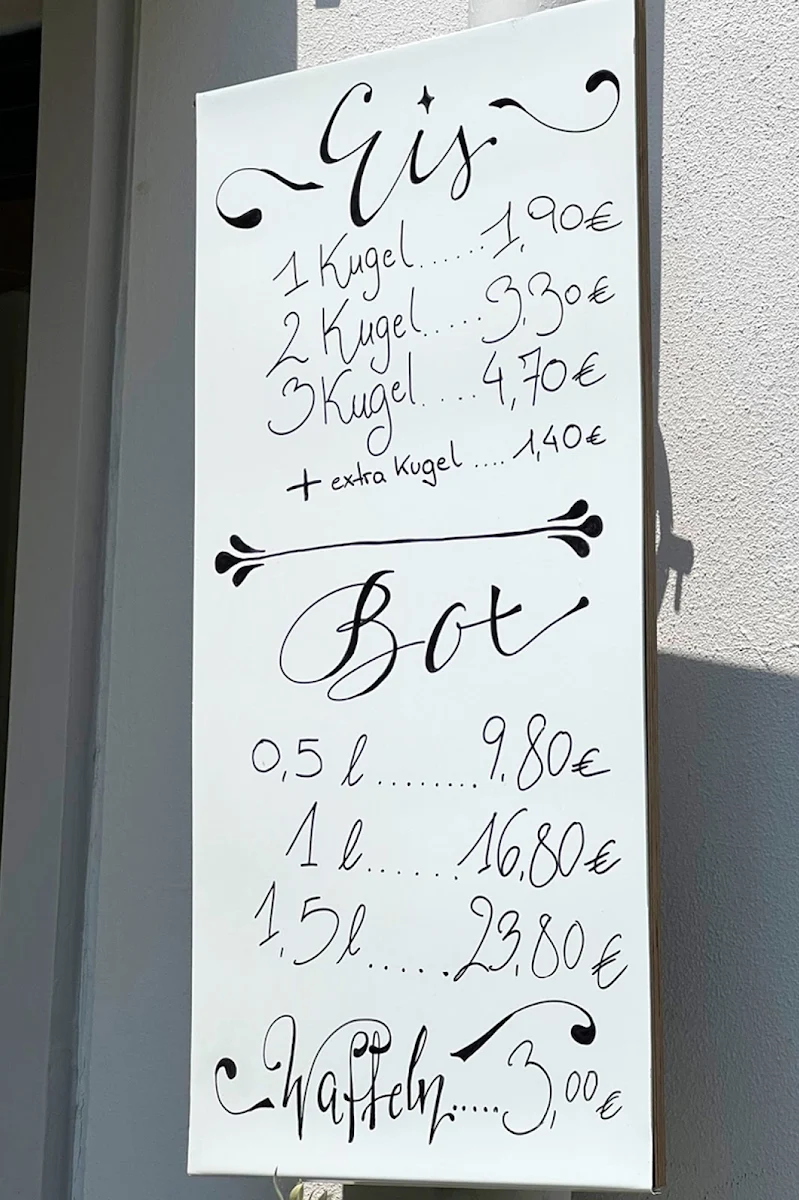 Eis
1 Kugel......1,90€
2 Kugel.....3,30€
3 Kugel....4,70€
+ extra Kugel ....1,40€
Box
0,5 l.........9,80€
1 l......16,80€
1,5 l......23,80€
Waffeln.....3,00€